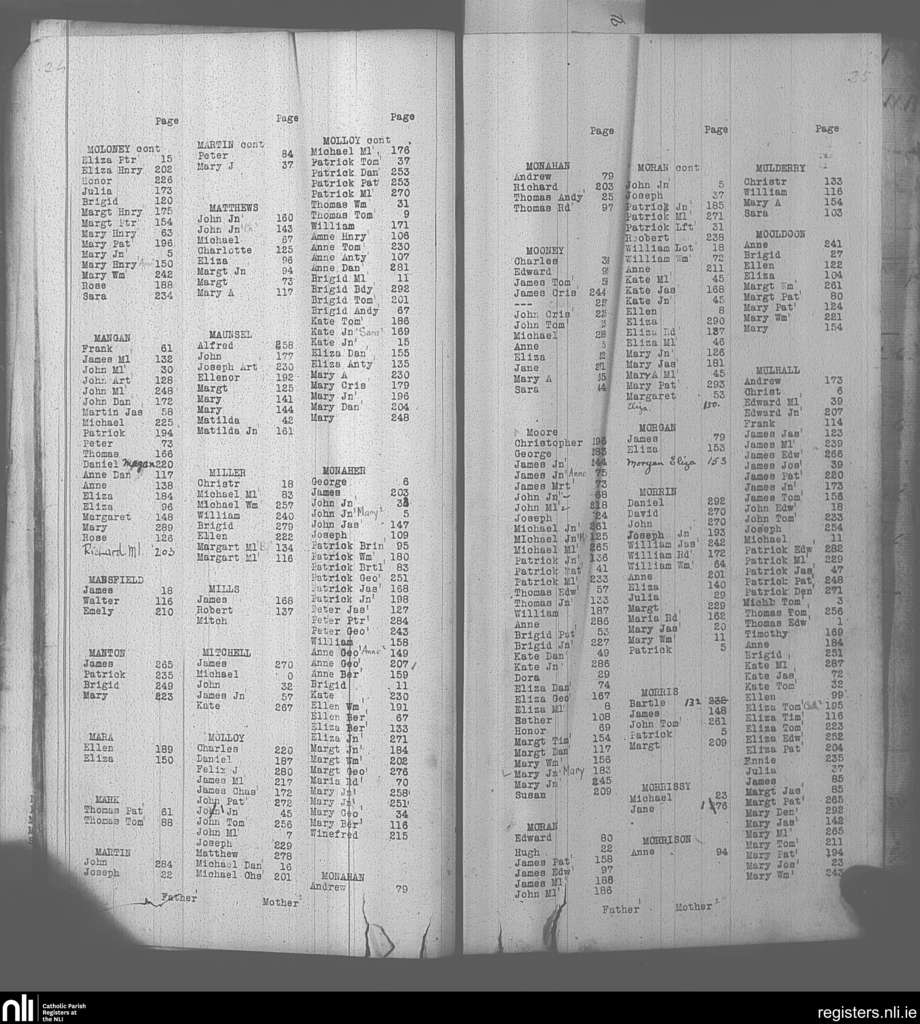 24
Page
MOLONEY cont
Eliza Ptr 15
Eliza Hnry 202
Honor 226
Julia 173
Brigid 120
Margt Hnry 175
Margt Ptr' 154
Mary Hnry 63
Mary Pat' 196
Mary Jn 5
Mary Hnry 150
Mary Wm' 242
Rose 188
Sara 234
MANGAN
Frank 61
James Ml 132
John Ml' 30
John Art' 128
John Ml' 248
John Dan' 172
Martin Jas 58
Michael 225
Patrick 194
Peter 73
Thomas 166
Daniel Magan 220
Anne Dan' 117
Anne 138
Eliza 184
Eliza 96
Margaret 148
Mary 289
Rose 126
Richard Ml' 203
MANSFIELD
James 18
Walter 116
Emely 210
MANTON
James 265
Patrick 235
Brigid 249
Mary 223
MARA
Ellen 189
Eliza 150
MARK
Thomas Pat' 61
Thomas Tom' 88
MARTIN
John 284
Joseph 22
Page
MARTIN cont
Peter 84
Mary J 37
MATTHEWS
John Jn' 160
John Jn' 143
Michael 67
Charlotte 125
Eliza 96
Margt Jn 94
Margt 73
Mary A 117
MAUNSEL
Alfred 258
John 177
Joseph Art 230
Ellenor 192
Margt 125
Mary 141
Mary 144
Matilda 42
Matilda Jn 161
MILLER
Christr 18
Michael Ml' 83
Michael Wm 257
William 240
Brigid 279
Ellen 222
Margart Ml' 134
Margart Ml' 116
MILLS
James 168
Robert 137
Mitch
MITCHELL
James 270
Michael 0
John 32
James Jn 57
Kate 267
MOLLOY
Charles 220
Daniel 187
Feliz J 280
James Ml 217
James Chas' 172
John Pat' 272
John Jn' 45
John Tom' 256
John Ml' 7
Joseph 229
Matthew 278
Michael Dan' 16
Michael Chs' 201
Page
MOLLOY cont
Michael Ml' 176
Patrick Tom' 37
Patrick Dan' 253
Patrick Pat' 253
Patrick Ml' 270
Thomas Wm' 31
Thomas Tom' 9
William 171
Anne Hnry' 106
Anne Tom' 230
Anne Anty' 107
Anne Dan' 281
Brigid Ml' 11
Brigid Bdy 292
Brigid Tom' 201
Brigid Andy 67
Kate Tom' 186
Kate Jn' Sara' 169
Kate Jn' 15
Eliza Dan' 155
Eliza Anty' 135
Mary A 230
Mary Cris' 179
Mary Jn' 196
Mary Dan' 204
Mary 248
MONAHER
George 6
James 203
John Jn'
John Jn' Mary' 5
John Jas' 147
Joseph 109
Patrick Brin' 95
Patrick Wm' 180
Patrick Brtl' 83
Patrick Geo' 251
Patrick Jas' 168
Patrick Jn' 198
Peter Jas' 127
Peter Ptr' 284
Peter Geo' 243
William 158
Anne Geo' Anne' 149
Anne Geo' 207
Anne Ber' 159
Brigid 11
Kate 230
Ellen Wm' 191
Ellen Ber' 67
Eliza Ber' 133
Eliza Jn' 271
Margt Jn' 184
Margt Wm' 202
Margt Geo' 276
Maria Rd' 70
Mary Jn' 258
Mary Jn' 251
Mary Geo' 34
Mary Ber' 116
Winefred 215
MONAHAN
Andrew 79
Father' Mother'
35
Page
MONAHAN
Andrew 79
Richard 203
Thomas Andy 25
Thomas Rd' 97
MOONEY
Charles
Edward
James Tom'
James Cris' 244
---
John Cris'
John Tom'
Michael
Anne
Eliza
Jane
Mary A
Sara
Moore
Christopher
George
James Jn'
James Jn' Anne
James Mrt' 73
John Jn' 68
John Ml'
Joseph
Michael Jn' 261
Michael Jn' 125
Michael Ml' 265
Patrick Jn' 136
Patrick Mat' 41
Patrick Ml' 233
Thomas Edw' 57
Thomas Jn' 133
William 187
Anne 286
Brigid Pat 53
Brigid Jn' 227
Kate Dan' 49
Kate Jn' 286
Dora 29
Eliza Dan' 74
Eliza Geo' 167
Eliza Ml' 8
Esther 108
Honor 69
Margt Tim' 154
Margt Dan' 117
Mary Wm' 156
Mary Jn' Mary 183
Mary Jn' 245
Susan 209
MORAN
Edward 80
Hugh 22
James Pat' 158
James Edw' 97
James Ml' 188
John Ml' 186
Page
MORAN cont
John Jn' 5
Joseph 37
Patrick Jn' 185
Patrick Ml' 271
Patrick Lft' 31
Robert 238
William Lot' 18
William Wm' 72
Anne 211
Kate Ml' 45
Kate Jas' 168
Kate Jn' 45
Ellen 8
Eliza 290
Eliza Rd' 137
Eliza Ml' 46
Mary Jn' 126
Mary Jas' 181
Mary A Ml' 45
Mary Pat' 293
Margaret 53
Eliza. 150.
MORGAN
James 79
Eliza 153
Morgan Eliza 153
MORRIN
Daniel 292
David 270
John 270
Joseph Jn' 193
William Jas' 242
William Rd' 172
William Wm' 64
Anne 201
Eliza 140
Julia 29
Margt 229
Maria Rd' 162
Mary Jas' 20
Mary Wm' 11
Patrick 5
MORRIS
Bartle 132 238
James 148
John Tom' 261
Patrick 5
Margt 209
MORRISSY
Michael 23
Jane 176
MORRISON
Anne 94
Page
MULDERRY
Christr 133
William 116
Mary A 154
Sara 103
MOOLDOON
Anne 241
Brigid 27
Ellen 122
Eliza 104
Margt Wm' 261
Margt Pat' 80
Mary Pat' 124
Mary Wm' 221
Mary 154
MULHALL
Andrew 173
Christ 6
Edward Ml' 39
Edward Jn' 207
Frank 114
James Jas' 123
James Ml' 239
James Edw' 266
James Jos' 39
James Pat' 220
James Jn' 173
James Tom' 156
John Edw' 18
John Tom' 233
Joseph 254
Michael 11
Patrick Edw 282
Patrick Ml' 229
Patrick Jas' 47
Patrick Pat' 248
Patrick Den' 271
Michb Tom' 3
Thomas Tom' 256
Thomas Edw' 1
Timothy 169
Anne 184
Brigid 251
Kate Ml' 287
Kate Jas' 72
Kate Tom' 32
Ellen 99
Eliza Tom' 195
Eliza Tim' 116
Eliza Tom' 223
Eliza Edw' 252
Eliza Pat' 204
Ennie 235
Julia 37
James 85
Margt Jas' 85
Margt Pat' 265
Mary Den' 292
Mary Jas' 142
Mary Ml' 265
Mary Tom' 211
Mary Pat' 194
Mary Jos' 23
Mary Wm' 243
Father' Mother'
nli Catholic Parish
Registers at
the NLI
registers.nli.ie